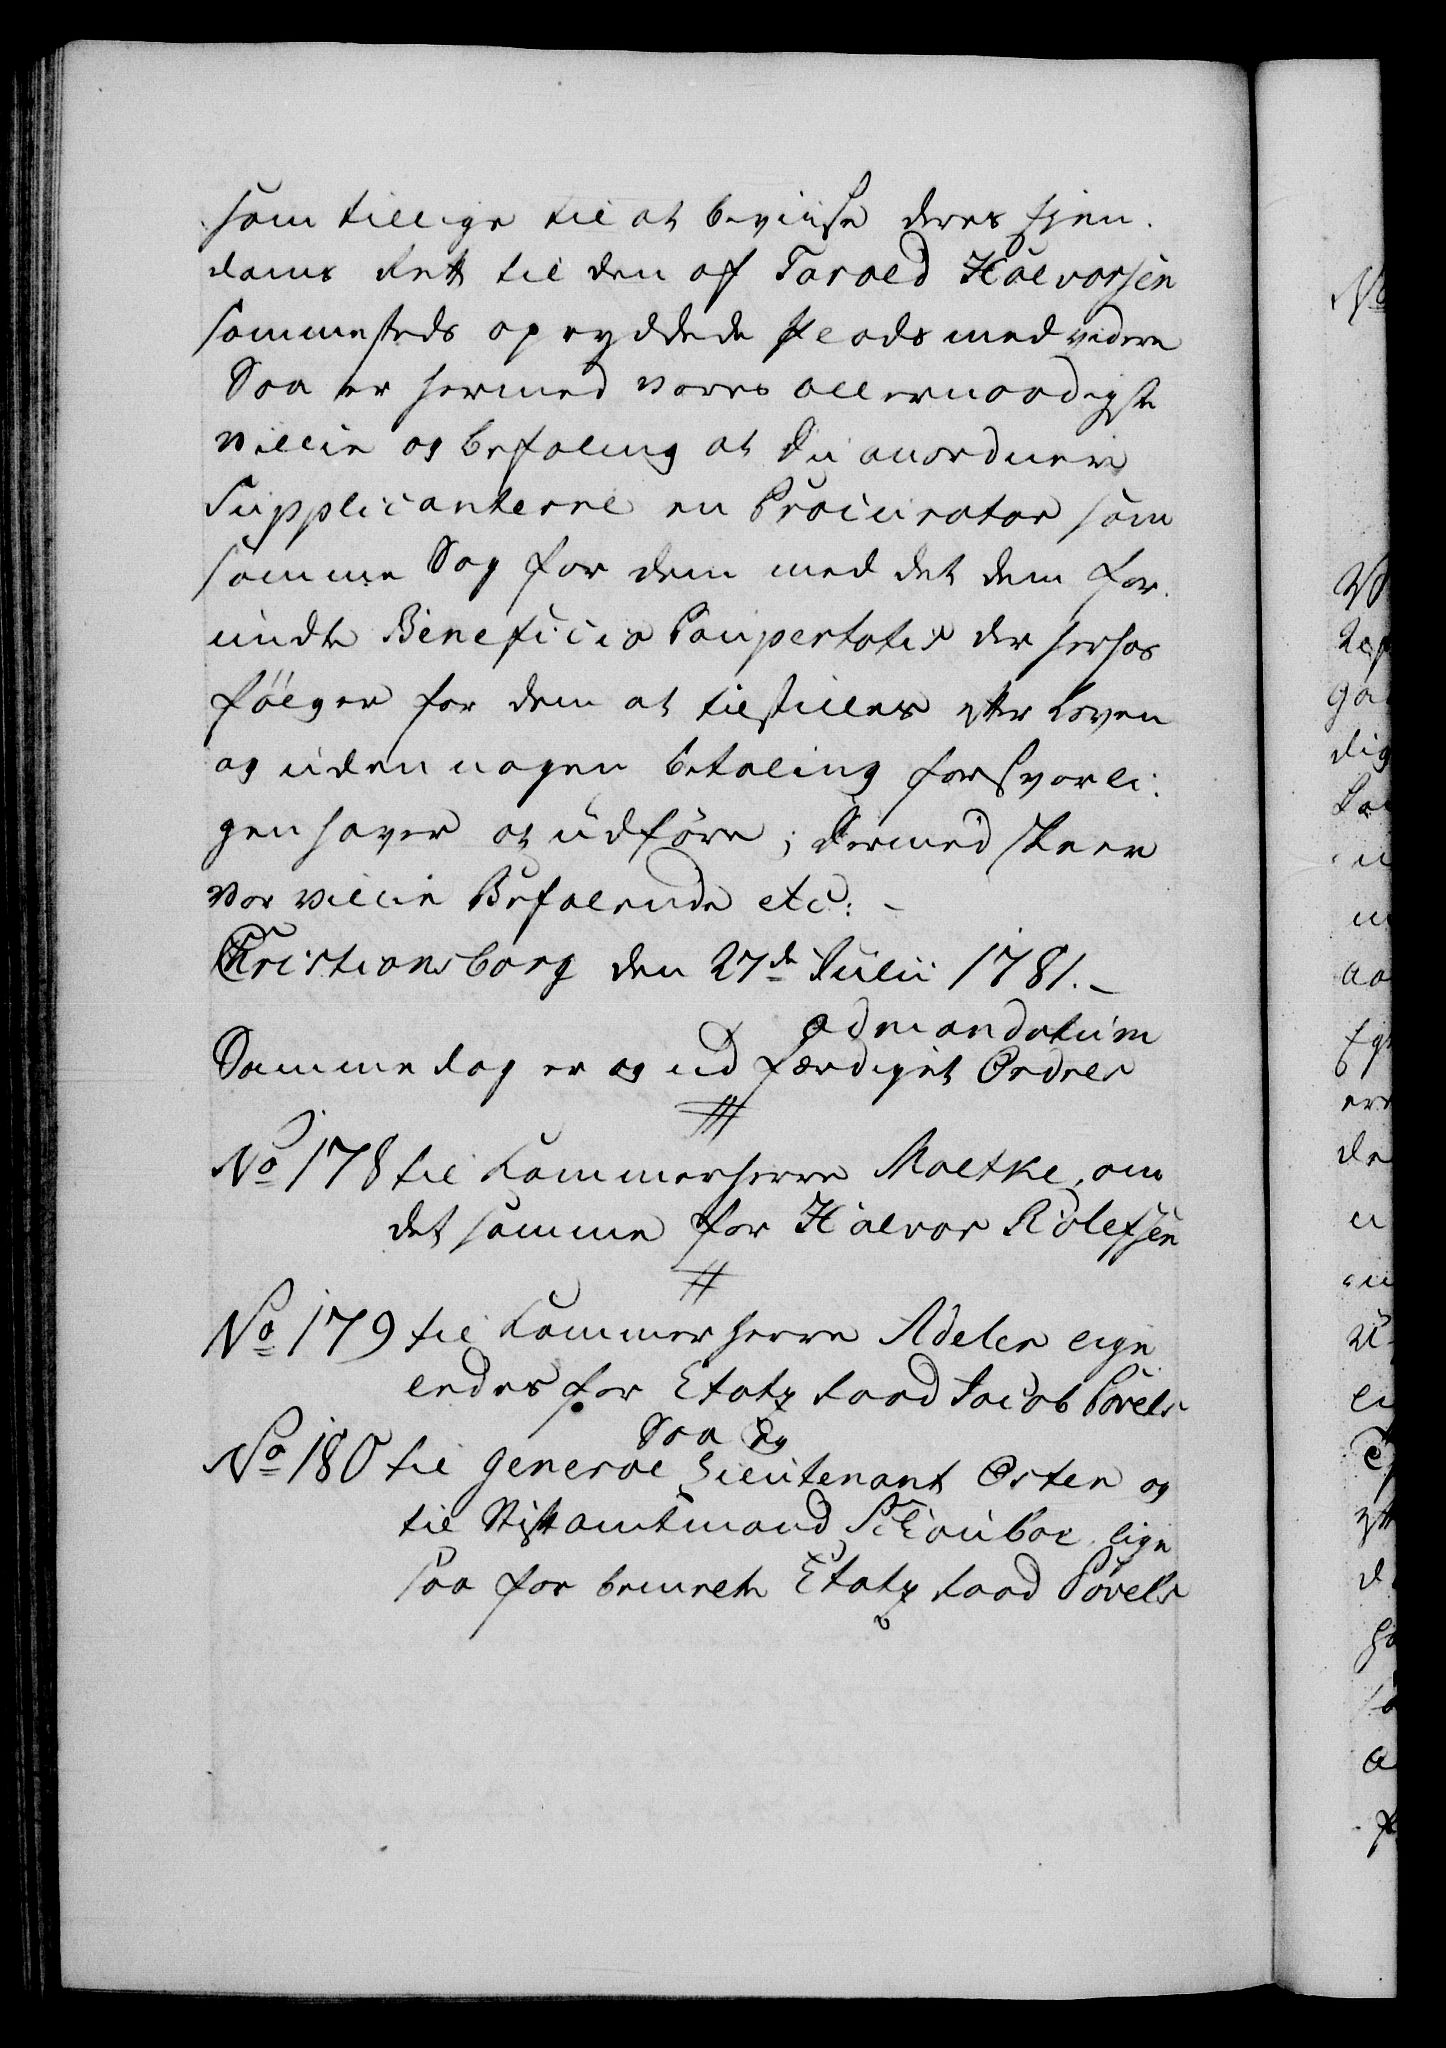 som tillige til at beviise deres Ejen-
doms Rett til den af Tarald Halvorsen
sammesteds opryddede Plads med videre
Saa er hermed vores allernaadigste
Villie og befaling at Du anordner
Supplicanterne en Procurator som
samme Sag for dem med det dem for-
undte Beneficio Paupertatis der herhos
fölger for dem at tilstilles efter Loven
og uden nogen betaling forsvarli-
gen haver at udföre; Dermed skeer
vor Villie Befalende etc: -
Christiansborg den 27de Julii 1781. -
ad mandatum
Samme dag er og udfærdiget Ordres
No 178 til Kammerherre Moltke, om
det samme for Halvor Rolefsen
No 179 til Kammerherre Adeler lige
ledes for Etatz Raad Jacob Povels
Saa og
No 180 til General Lieutenant Osten og
til Stiftamtmand Schouboe lige
saa for bemelte Etatz Raad Povels